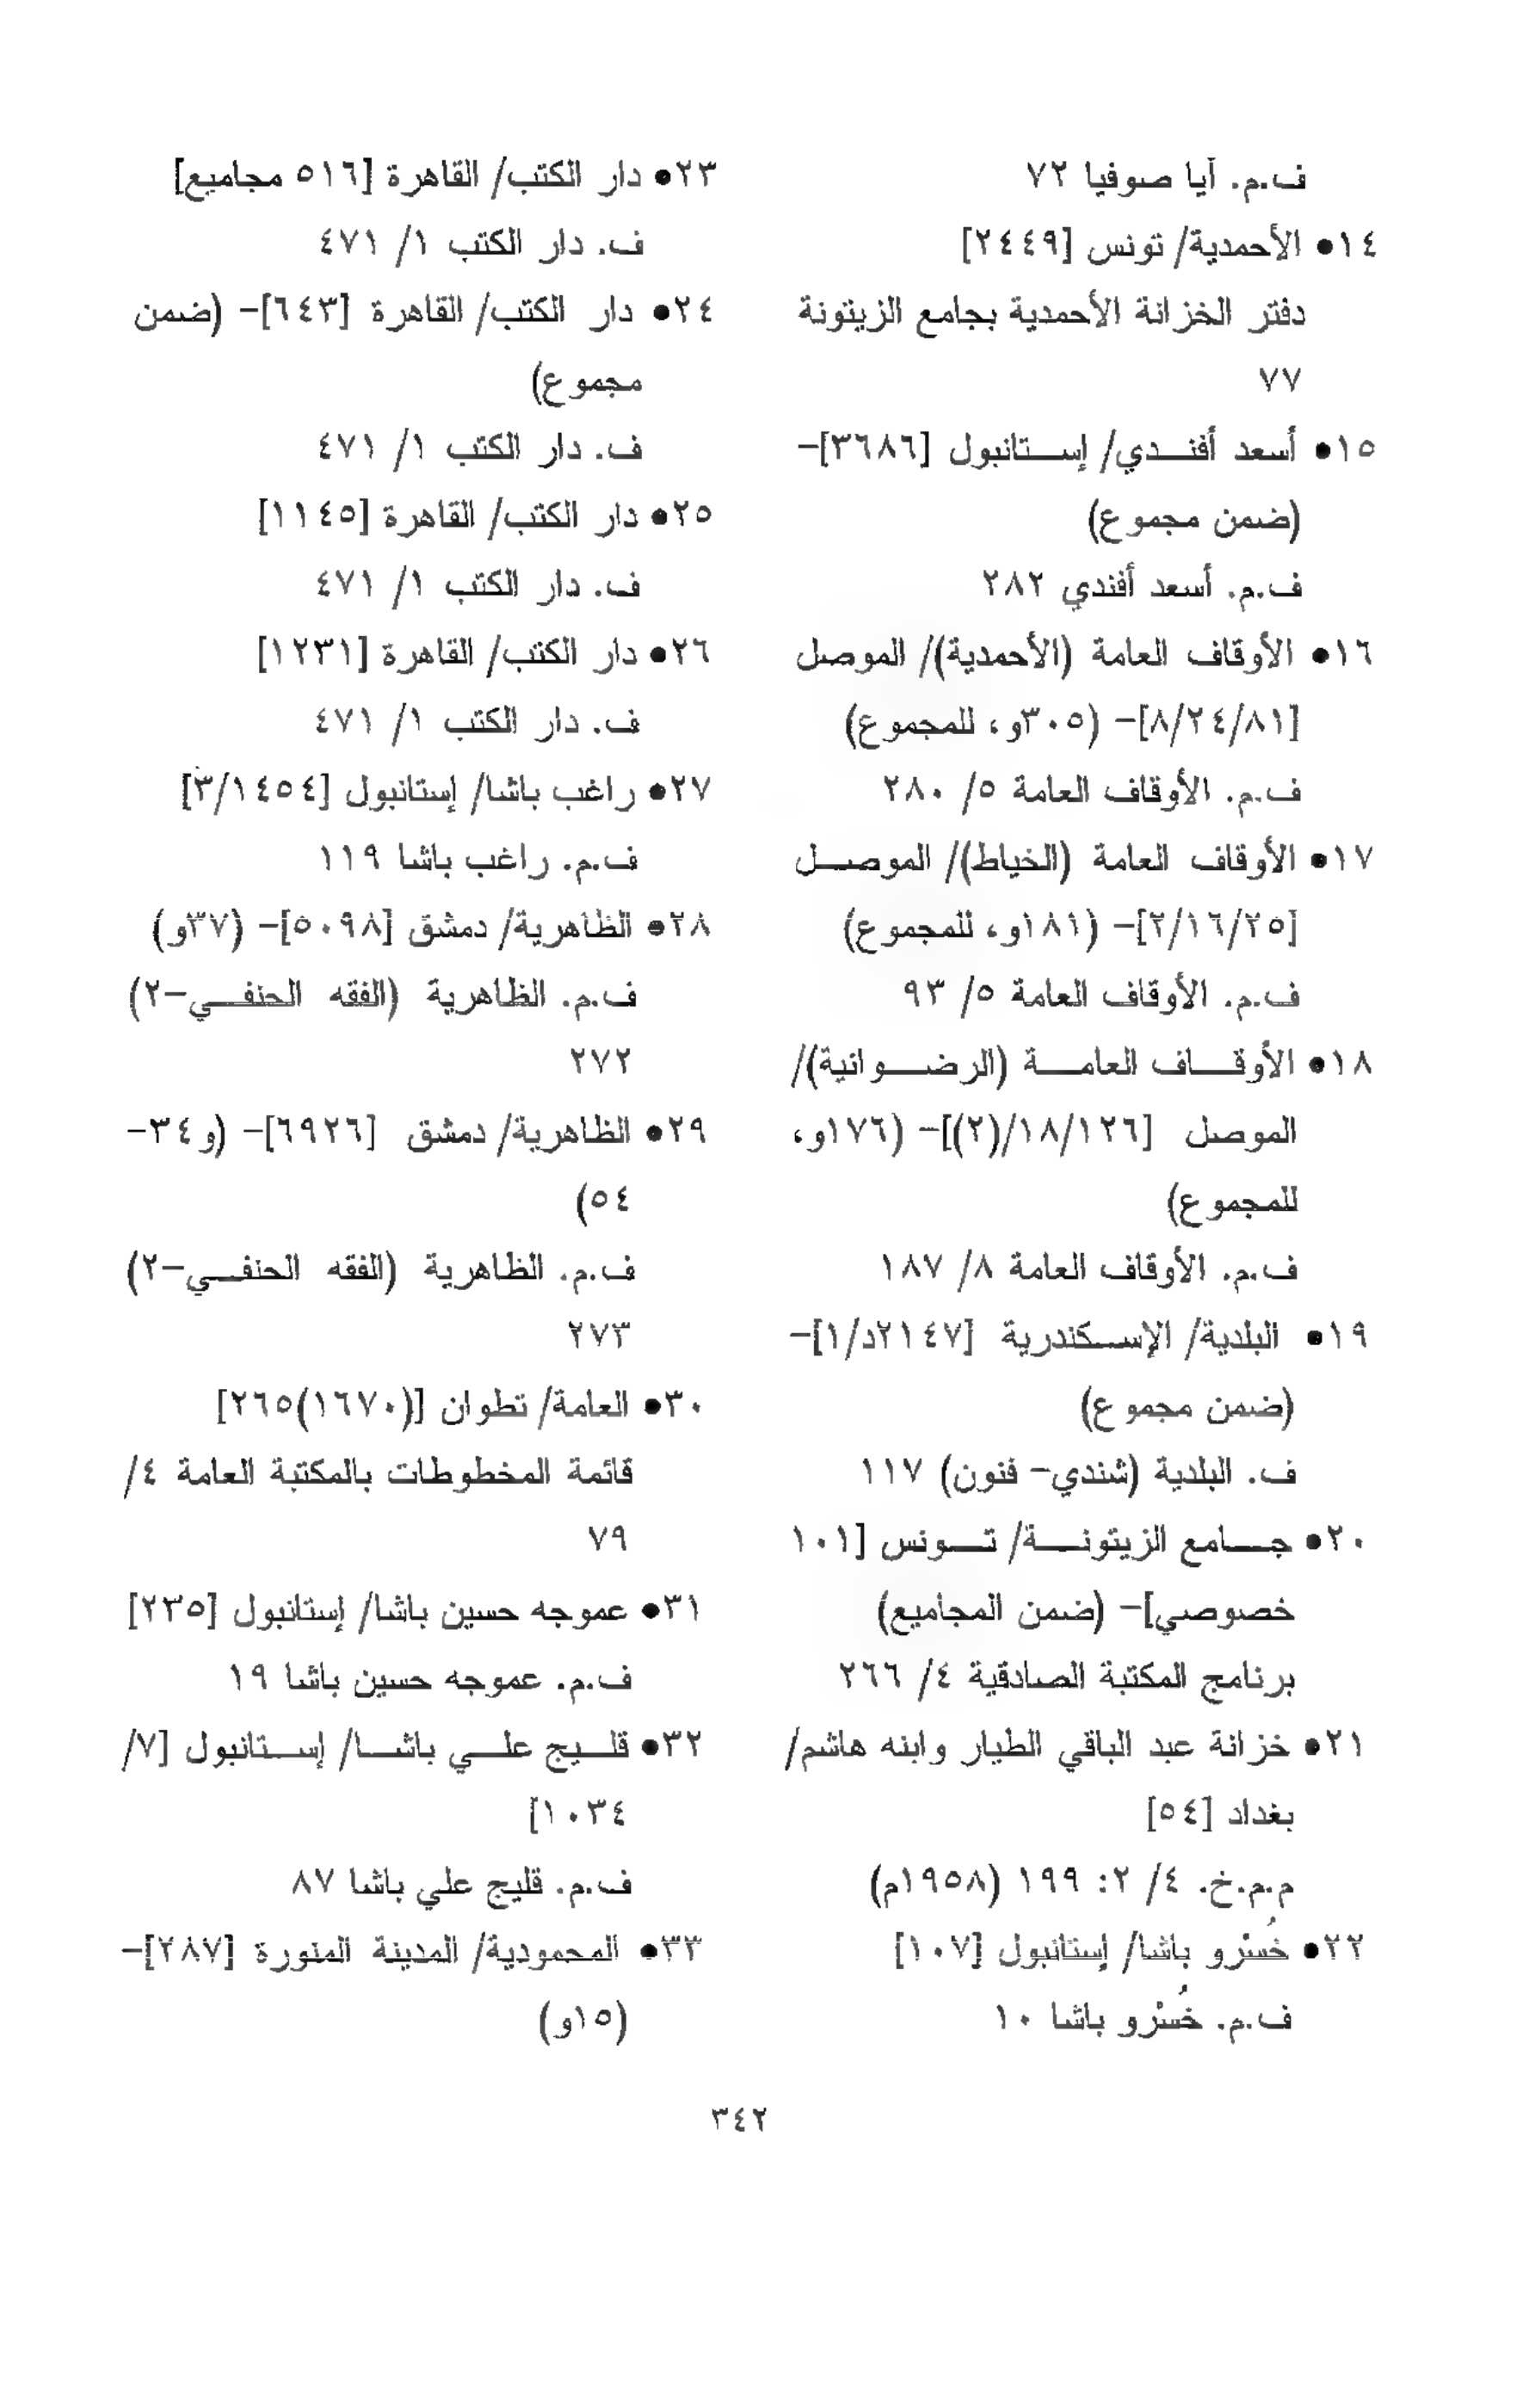 ف.م. آيا صوفيا ٧٢
١٤● الأحمدية/ تونس [٢٤٤٩]
دفتر الخزانة الأحمدية بجامع الزيتونة
٧٧
١٥● أسعد أفندي/ إستانبول [٣٦٨٦]-
(ضمن مجموع)
ف.م. أسعد أفندي ٢٨٢
١٦● الأوقاف العامة (الأحمدية)/ الموصل
[٨/٢٤/٨١]- (٣٠٥و، للمجموع)
ف.م. الأوقاف العامة ٥/ ٢٨٠
١٧● الأوقاف العامة (الخياط)/ الموصل
[٢/١٦/٢٥]- (١٨١و، للمجموع)
ف.م. الأوقاف العامة ٥/ ٩٣
١٨● الأوقاف العامة (الرضوانية)/
الموصل [١٨/١٢٦/(٢)]- (١٧٦و،
للمجموع)
ف.م. الأوقاف العامة ٨/ ١٨٧
١٩● البلدية/ الإسكندرية [٢١٤٧د/١]-
(ضمن مجموع)
ف. البلدية (شندي- فنون) ١١٧
٢٠● جامع الزيتونة/ تونس [١٠١
خصوصي]- (ضمن المجاميع)
برنامج المكتبة الصادقية ٤/ ٢٦٦
٢١● خزانة عبد الباقي الطيار وابنه هاشم/
بغداد [٥٤]
م.م.خ. ٤/ ٢: ١٩٩ (١٩٥٨م)
٢٢● خُسْرو باشا/ إستانبول [١٠٧]
ف.م. خُسْرو باشا ١٠
٢٣● دار الكتب/ القاهرة [٥١٦ مجاميع]
ف. دار الكتب ١/ ٤٧١
٢٤● دار الكتب/ القاهرة [٦٤٣]- (ضمن
مجموع)
ف. دار الكتب ١/ ٤٧١
٢٥● دار الكتب/ القاهرة [١١٤٥]
ف. دار الكتب ١/ ٤٧١
٢٦● دار الكتب/ القاهرة [١٢٣١]
ف. دار الكتب ١/ ٤٧١
٢٧● راغب باشا/ إستانبول [٣/١٤٥٤]
ف.م. راغب باشا ١١٩
٢٨● الظاهرية/ دمشق [٥٠٩٨]- (٣٧و)
ف.م. الظاهرية (الفقه الحنفي-٢)
٢٧٢
٢٩● الظاهرية/ دمشق [٦٩٢٦]- (و٣٤-
٥٤)
ف.م. الظاهرية (الفقه الحنفي-٢)
٢٧٣
٣٠● العامة/ تطوان [(١٦٧٠)٢٦٥]
قائمة المخطوطات بالمكتبة العامة ٤/
٧٩
٣١● عموجه حسين باشا/ إستانبول [٢٣٥]
ف.م. عموجه حسين باشا ١٩
٣٢● قليج علي باشا/ إستانبول [٧/
١٠٣٤]
ف.م. قليج علي باشا ٨٧
٣٣● المحمودية/ المدينة المنورة [٢٨٧]-
(١٥و)
٣٤٢